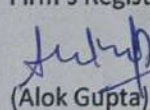 Firm's Regist
(Alok Gupta)